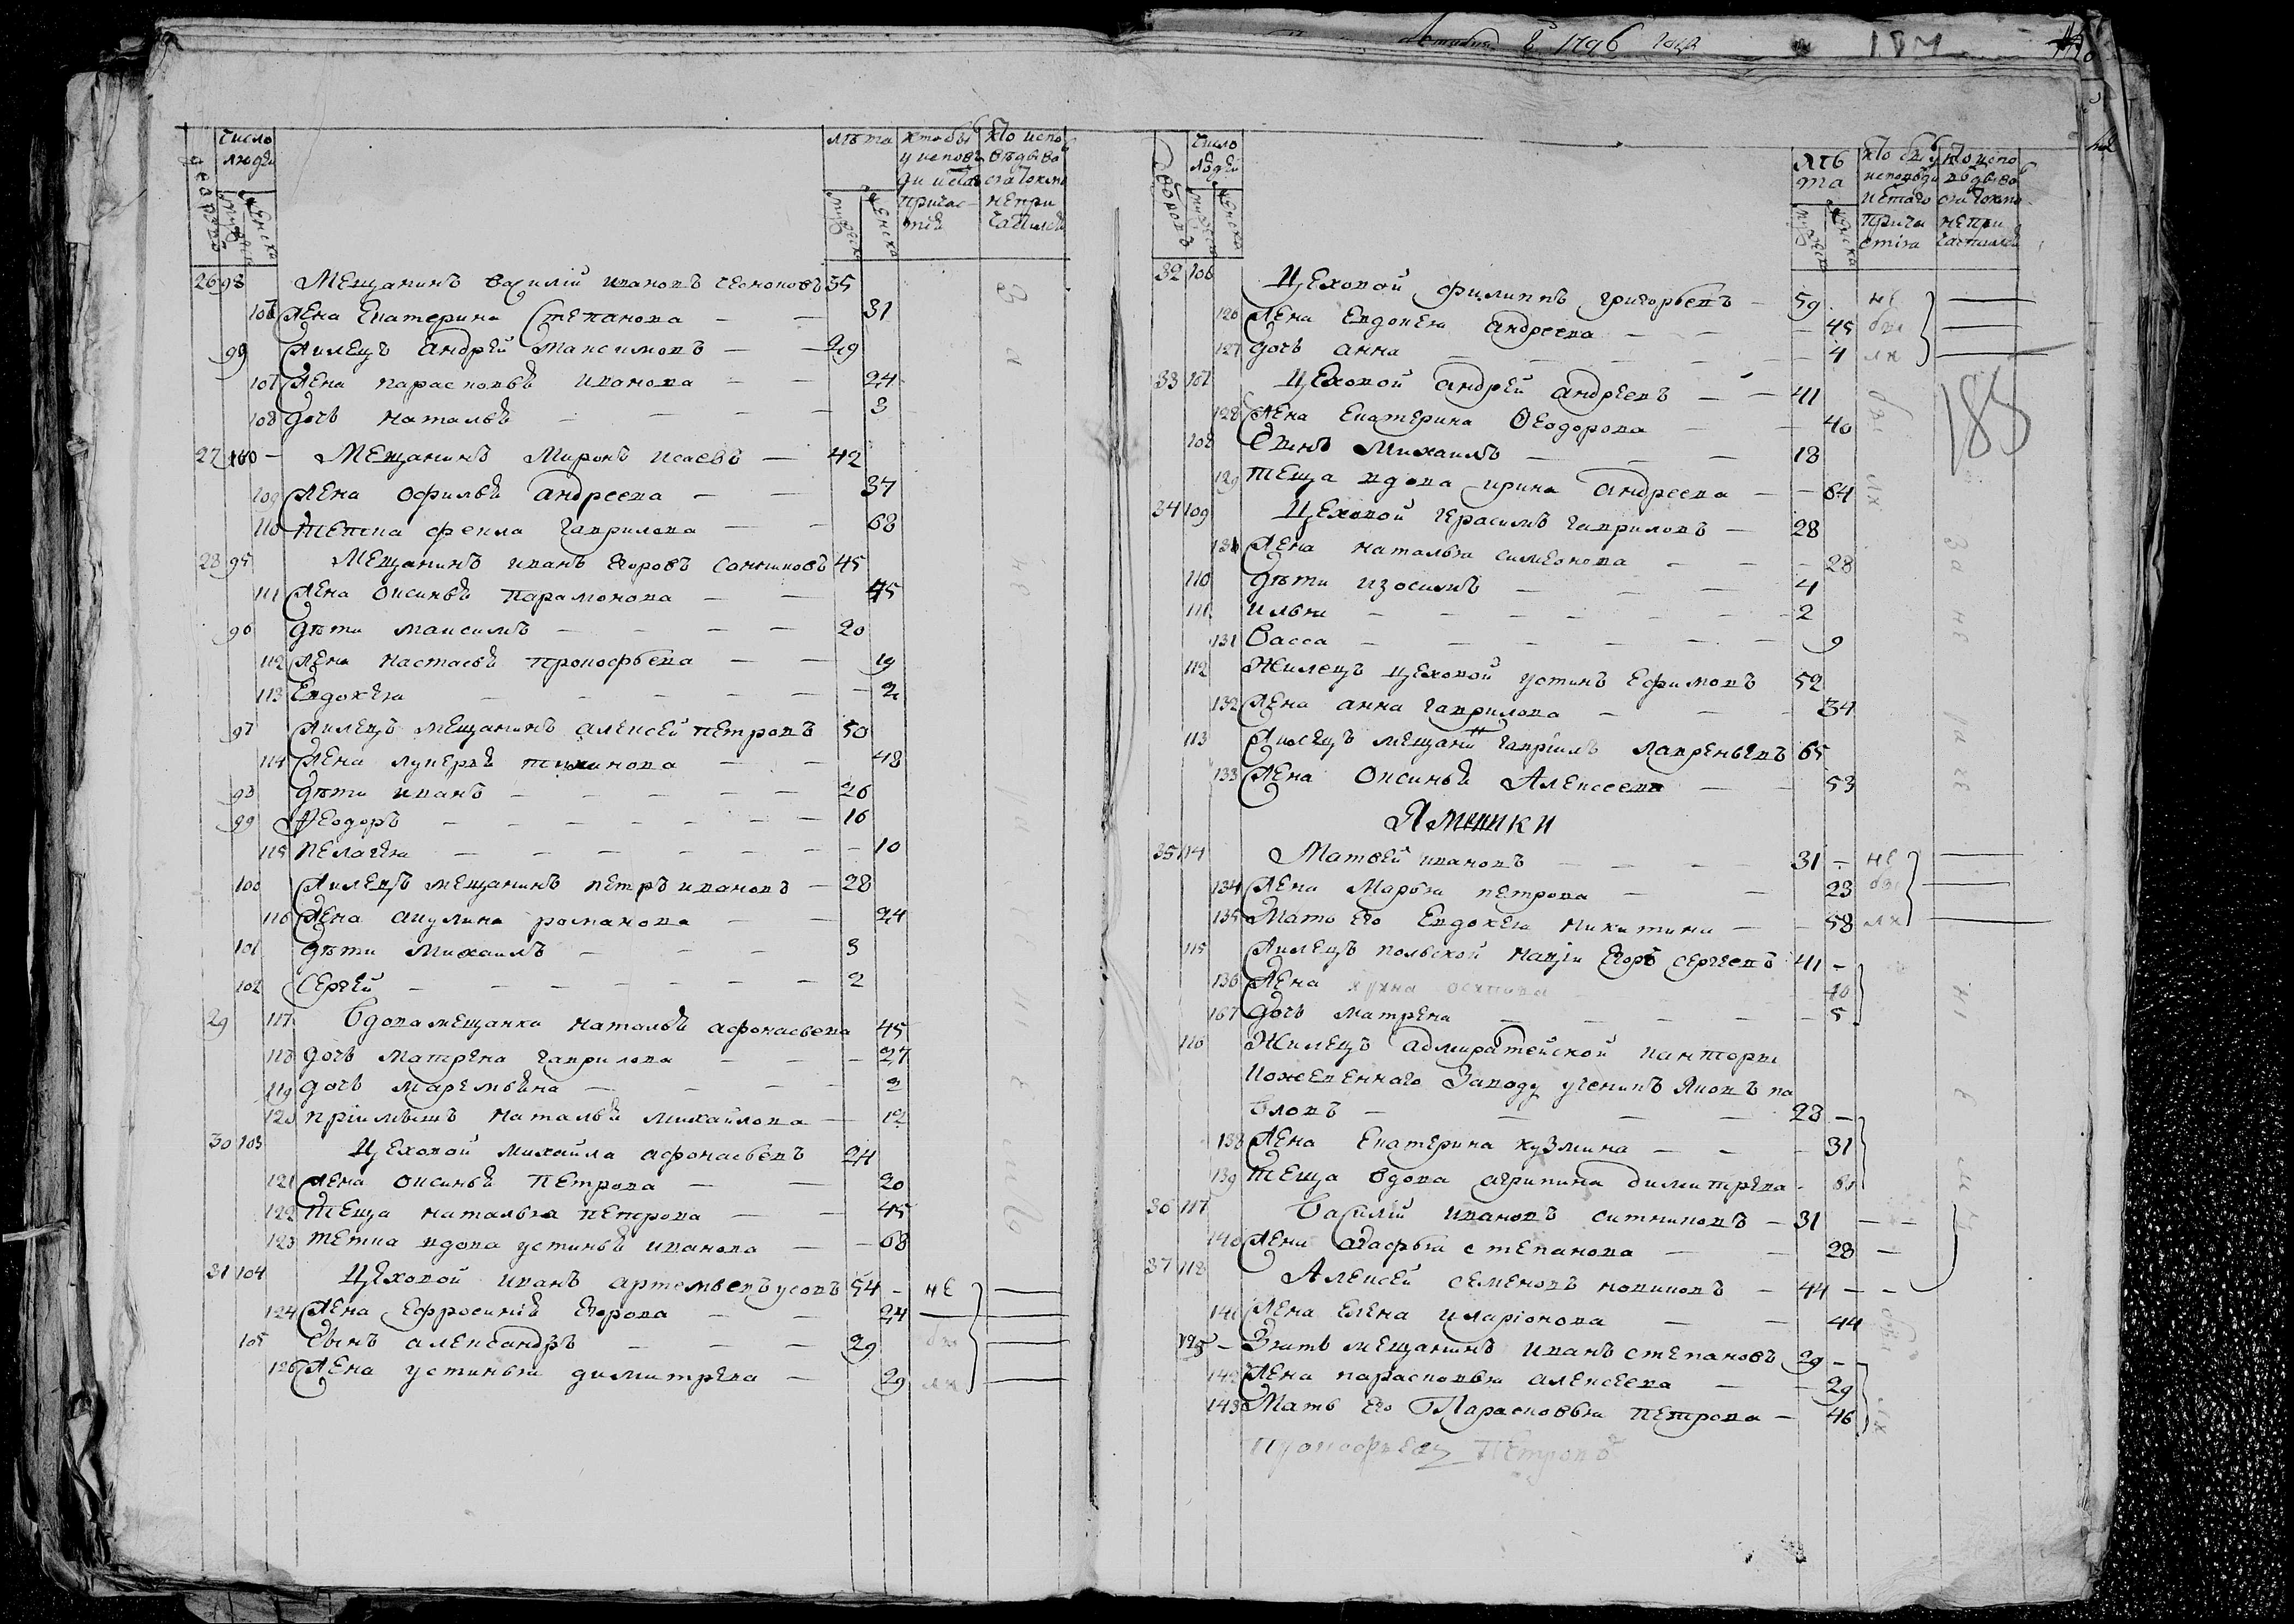 1796 года
число людей лѣта кто бы у исповеди и свят. причастия кто исповедыва ся токмо не при частился
дворовъ мужеска женска мужеска женска
26 98 Мещанинъ василий ивановъ 35
106 жена Екатерина Степанова — — 31
99 жилецъ андрей максимовъ — — 29
107 жена парасковья иванова — — 24
108 дочь наталья — — — — 3
27 100 — Мещанинъ Миронъ исаевъ — 42
109 жена офилья андреева — — 37
110 тетка фекла гаврилова — — 68
28 95 Мещанинъ иванъ егоровъ 45
111 жена оксинья парамонова — — 45
96 дѣти максимъ — — — — 20
112 жена настасья прокофьева — — 19
113 Евдокея — — — — — — 2
97 жилецъ мещанинъ алексей петровъ 50
114 жена лукерья тихинова — — 48
98 дѣти иванъ — — — — — 26
99 Феодоръ — — — — — — 16
115 пелагея — — — — — — 10
100 жилецъ мещанинъ петръ ивановъ — 28
116 жена акулина романова — — 24
101 дѣти Михаилъ — — — — 3
102 Сергей — — — — — — — 2
29 117 Вдова мещанка наталья афонасьева 45
118 дочь матрена гаврилова — — — 27
119 дочь маремьяна — — — — 2
120 пріимышъ наталья михайлова — 12
30 103 Цеховой михайла афонасьевъ 24
121 жена оксинья Петрова — — 20
122 теща наталья петрова — — 45
123 тетка вдова устинья иванова — — 68
31 104 Цеховой иванъ артемьевъ усовъ 54 — не
124 жена Ефросинія Егорова — — 24
105 сынъ александръ — — — 29 бы
126 жена устинья димитрева — 29 ли
За не ра се ни емъ
32 106 Цеховой филиппъ григорьевъ — 59 не
126 жена Евдокея андреева — — — 45 бы
127 дочь анна — — — — — — 4 ли
33 107 Цеховой андрей андреевъ — — 41
128 жена Екатерина Феодорова — — 40
108 Сынъ михаилъ — — — 18
129 теща вдова ирина андреева — — 64
34 109 Цеховой герасимъ гавриловъ — 28
130 жена наталья симеонова — — — 28
110 дѣти изосимъ — — — 4
111 илья — — — — — — 2
131 Васса — — — — — — — 9
112 Жилецъ цеховой устинъ Ефимовъ 52
132 жена анна гаврилова — — — 34
113 жилецъ мещанинъ гавріилъ лаврентьевъ 65
133 жена оксинья Алексеева — — 53
Ямщики
35 114 Матвей ивановъ — — — — 31 — не
134 жена Марья петрова — — 23 бы
135 Мать его Евдокея никитина — — 58 ли
115 жилецъ польской націи Егоръ Сергеевъ 41 —
136 жена осипова 40
167 дочь матрена — — — — — 5
116 Жилецъ адмиралтейской канторы
ижевенного заводу ученикъ яковъ па
вловъ — — — — 28 —
138 жена Екатерина кузмина — — — 31
139 теща вдова агрипина димитрева 60
36 117 Василій ивановъ ситниковъ — 31 — —
140 жена агафья степанова — — 28 —
37 118 Алексей семеновъ новиковъ — 44 — —
141 жена Елена иларіонова — — 44
125 — Зять мещанинъ иванъ степановъ 29 —
142 жена парасковья алексеева — — 29
143 Мать его Парасковья петрова — 46
прокофьевъ Петровъ
185